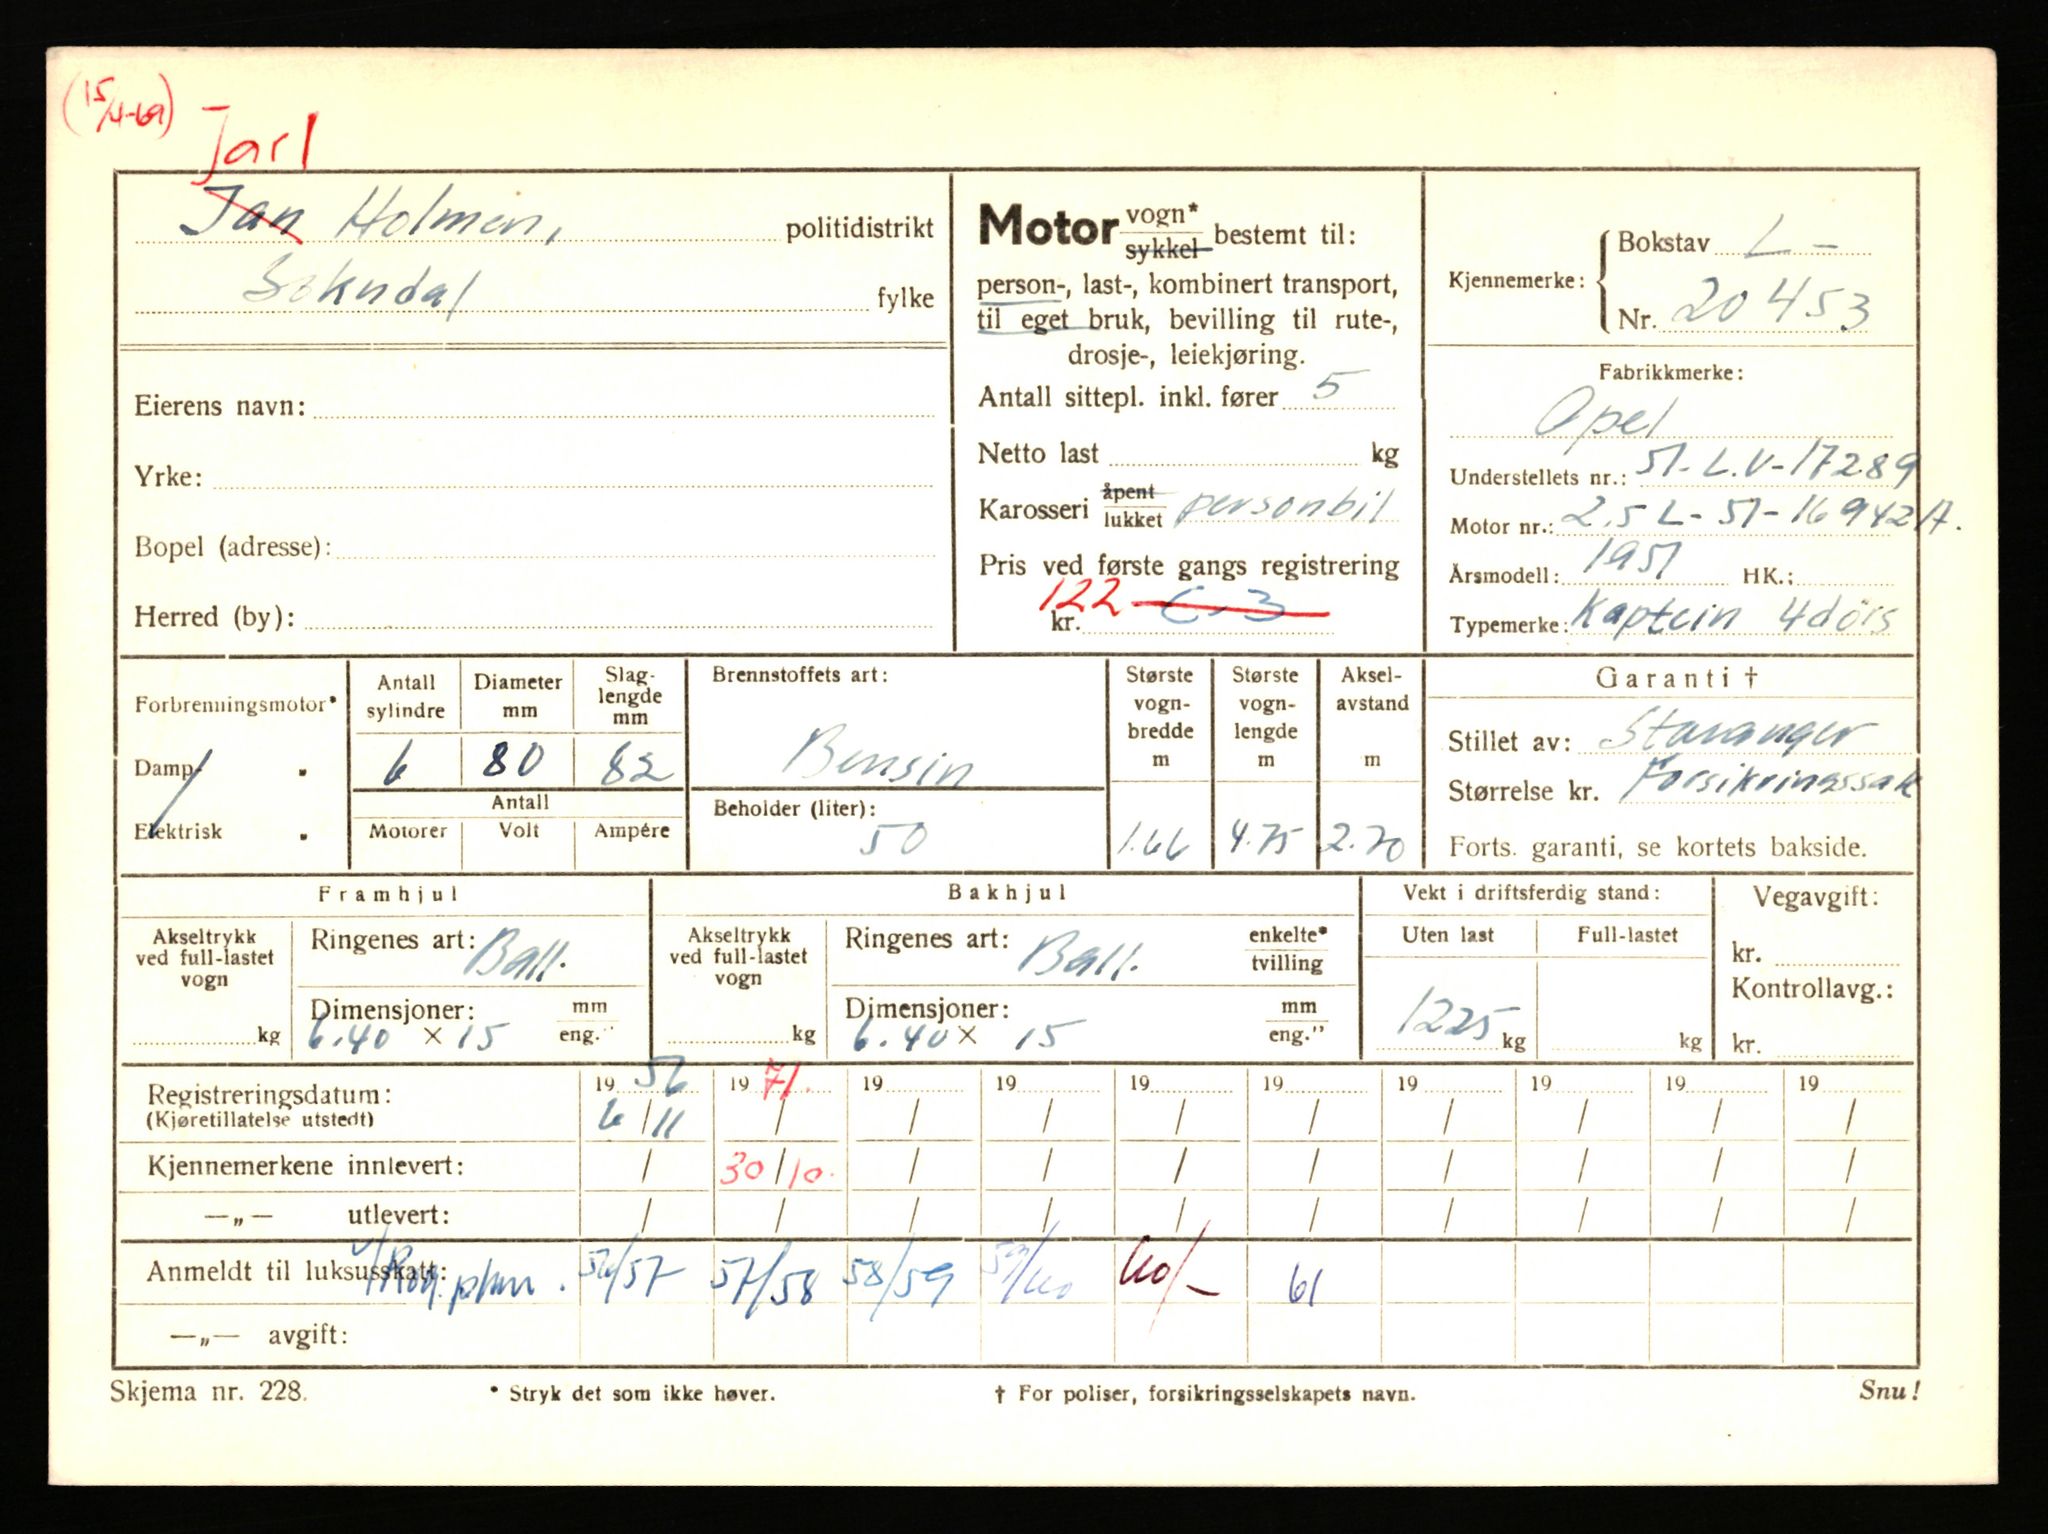 (15/4-69)
Jarl
Jan Holmen, politidistrikt
Sokndal fylke
Eierens navn:
Yrke:
Bopel (adresse):
Herred (by):
Motor vogn* sykkel bestemt til:
person-, last-, kombinert transport,
til eget bruk, bevilling til rute-,
drosje-, leiekjøring.
Antall sittepl. inkl. fører 5
Netto last kg
Karosseri åpent lukket personbil
Pris ved første gangs registrering
122
kr.
Kjennemerke: Bokstav L -
Nr. 20453
Fabrikkmerke:
Opel
Understellets nr.: 51-L.V-17289
Motor nr.: 2.5 L-51-16942A.
Årsmodell: 1951 HK.:
Typemerke: Kaptein 4dørs
Forbrenningsmotor*
Damp- "
Elektrisk "
Antall sylindre
6
Diameter mm
80
Slaglengde mm
82
Antall
Motorer Volt Ampére
Brennstoffets art:
Bensin
Beholder (liter):
50
Største vognbredde m
1.66
Største vognlengde m
4.75
Akselavstand m
2.70
Garanti †
Stillet av: Stavanger
Størrelse kr. Forsikringssak
Forts. garanti, se kortets bakside.
Framhjul
Akseltrykk ved full-lastet vogn
kg
Ringenes art: Ball.
Dimensjoner: mm eng."
6.40 x 15
Bakhjul
Akseltrykk ved full-lastet vogn
kg
Ringenes art: Ball. enkelte* tvilling
Dimensjoner: mm eng."
6.40 x 15
Vekt i driftsferdig stand:
Uten last Full-lastet
1225 kg kg
Vegavgift:
kr.
Kontrollavg.:
kr.
Registreringsdatum: 19 56 19 71. 19 19 19 19 19 19 19 19
(Kjøretillatelse utstedt) 6/11 / / / / / / / / /
Kjennemerkene innlevert: / 30/10. / / / / / / / /
—„— utlevert: / / / / / / / / / /
Anmeldt til luksusskatt: 56/57 57/58 58/59 59/60 60/- 61
—„— avgift:
Skjema nr. 228. * Stryk det som ikke høver. † For poliser, forsikringsselskapets navn. Snu!